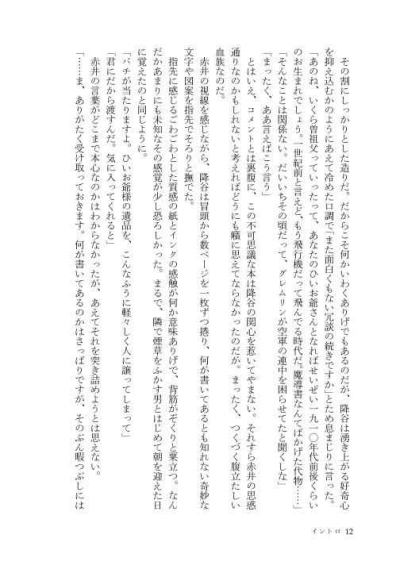 その割にしっかりとした造りだ。だからこそ何かいわくありげでもあるのだが、降谷は湧き上がる好奇心
を抑え込むかのようにあえて冷めた口調で「また面白くもない冗談の続きですか」とため息まじりに言った。
「あのね、いくら曽祖父っていったって、あなたのひいお爺さんとなればせいぜい一九一〇年代前後くらい
のお生まれでしょう。一世紀前と言えど、もう飛行機だって飛んでる時代だ。魔導書なんてばかげた代物……」
「そんなことは関係ない。だいいちその頃だって、グレムリンが空軍の連中を困らせてたと聞くしな」
「まったく、ああ言えばこう言う」
とはいえ、コメントとは裏腹に、この不可思議な本は降谷の関心を惹いてやまない。それすら赤井の思惑
通りなのかもしれないと考えればどうにも癪に思えてならなかったのだが。まったく、つくづく腹立たしい
血族なのだ。
赤井の視線を感じながら、降谷は冒頭から数ページを一枚ずつ捲り、何が書いてあるとも知れない奇妙な
文字や図案を指先でそろりと撫でた。
指先に感じるごわごわとした質感の紙とインクの感触が何か意味ありげで、背筋がぞくりと粟立つ。なん
だかあまりにも未知なその感覚が少し恐ろしかった。まるで、隣で煙草をふかす男とはじめて朝を迎えた日
に覚えたのと同じように。
「バチが当たりますよ。ひいお爺様の遺品を、こんなふうに軽々しく人に譲ってしまって」
「君にだから渡すんだ。気に入ってくれると」
赤井の言葉がどこまで本心なのかはわからなかったが、あえてそれを突き詰めようとは思えない。
「……ま、ありがたく受け取っておきます。何が書いてあるのかはさっぱりですが、そのぶん暇つぶしには
イントロ 12